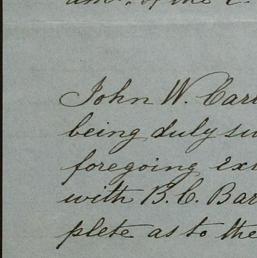 of the
John W. Car
being duly
foregoing ex
with B. C. Bar
plete as to the